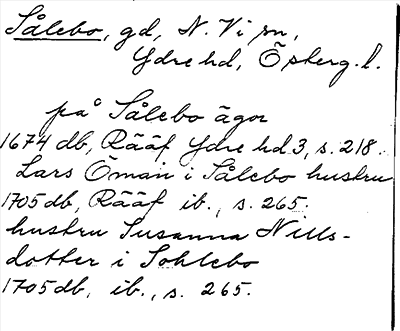 Sålebo, gd, N. Vi sn,
Ydre hd, Österg. l.
på Sålebo ägor
1674 db, Rääf Ydre hd 3, s. 218.
Lars Öman i Sålebo hustru
1705 db, Rääf ib., s. 265.
hustru Susanna Nills-
dotter i Sohlebo
1705 db, ib., s. 265.